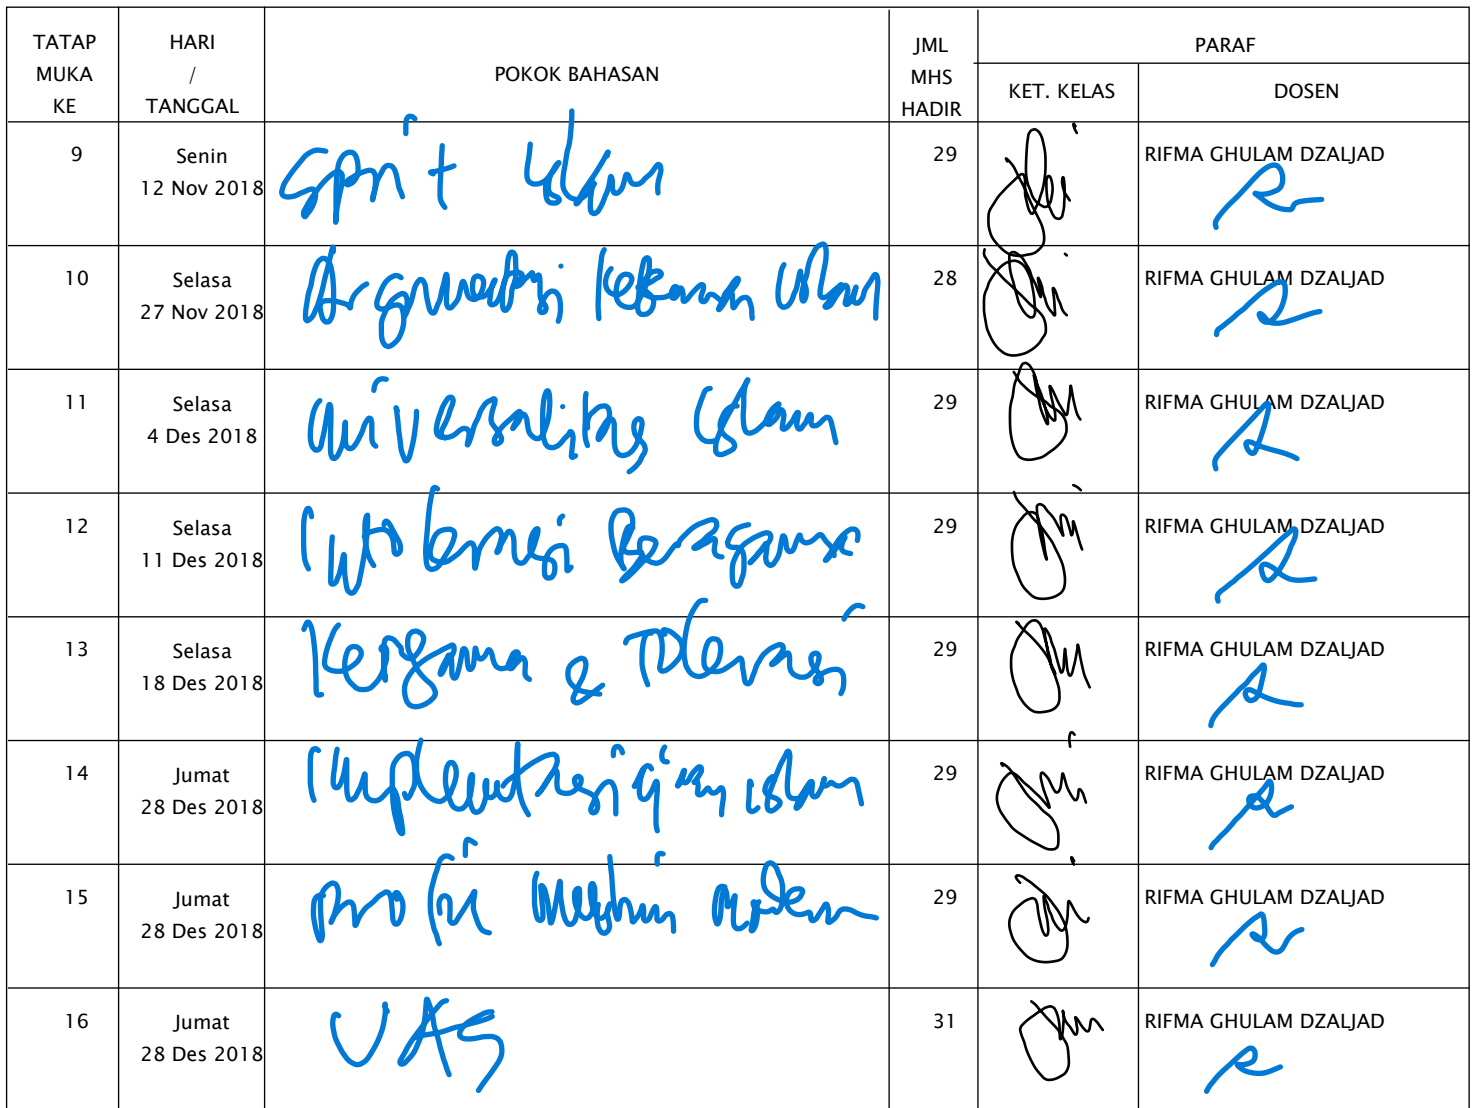 TATAP MUKA KE
HARI / TANGGAL
POKOK BAHASAN
JML MHS HADIR
PARAF
KET. KELAS
DOSEN
9 Senin 12 Nov 2018 Spirit Islam 29 RIFMA GHULAM DZALJAD
10 Selasa 27 Nov 2018 Argumentasi Islam 28 RIFMA GHULAM DZALJAD
11 Selasa 4 Des 2018 Universalitas Islam 29 RIFMA GHULAM DZALJAD
12 Selasa 11 Des 2018 Intoleransi Beragama 29 RIFMA GHULAM DZALJAD
13 Selasa 18 Des 2018 & Toleransi 29 RIFMA GHULAM DZALJAD
14 Jumat 28 Des 2018 Implementasi ajaran islam 29 RIFMA GHULAM DZALJAD
15 Jumat 28 Des 2018 profil muslim modern 29 RIFMA GHULAM DZALJAD
16 Jumat 28 Des 2018 UAS 31 RIFMA GHULAM DZALJAD